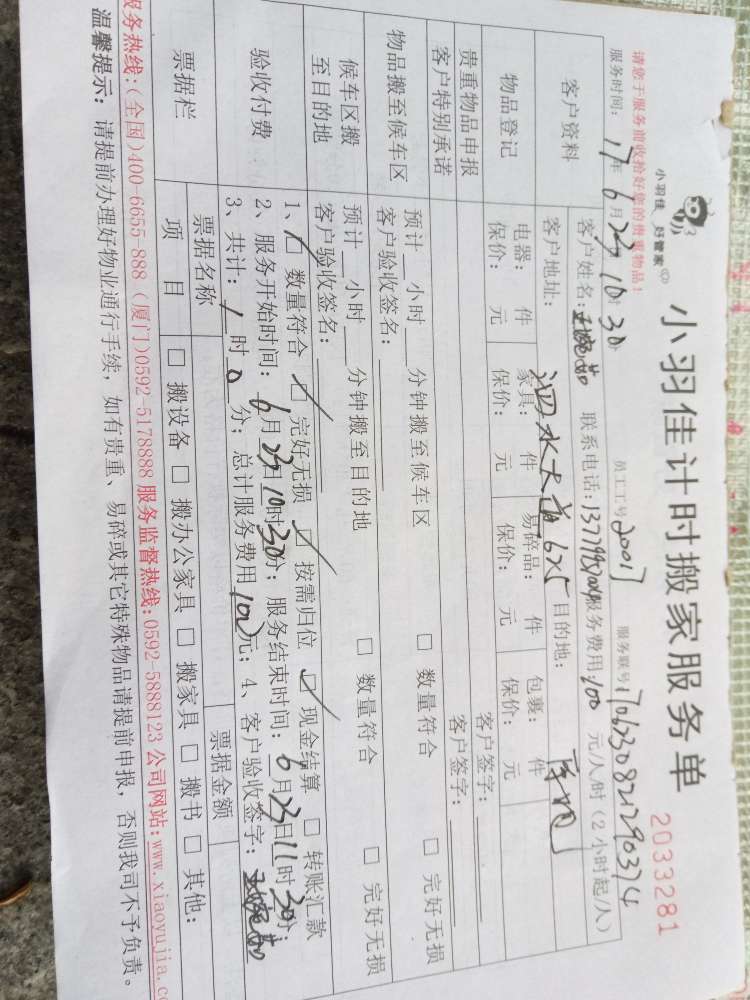 小羽佳 好管家
小羽佳计时搬家服务单
2033281
请您于服务前收拾好您的贵重物品！
服务时间：17年6月23日10:30分 员工工号20017 服务联号1706230821290374
客户资料
客户姓名： 联系电话： 服务费用:100 元/人/时（2小时起/人）
客户地址：泗水大道625 目的地：
物品登记
电器： 件 家具： 件 易碎品： 件 包裹： 件
保价： 元 保价： 元 保价： 元 保价： 元
贵重物品申报 客户签字：
客户特别承诺 客户签字：
物品搬至候车区
预计 小时 分钟搬至候车区 □ 数量符合 □ 完好无损
客户验收签名：
候车区搬至目的地
预计 小时 分钟搬至目的地 □ 数量符合 □ 完好无损
客户验收签名：
验收付费
1、☑ 数量符合 ☑ 完好无损 ☑ 按需归位 ☑ 现金结算 □ 转账汇款
2、服务开始时间：6月23日10时30分；服务结束时间：6月23日11时30分；
3、共计：1时0分；总计服务费用100元；4、客户验收签字：
票据栏
票据名称 票据金额
项 目 □ 搬设备 □ 搬办公家具 □ 搬家具 □ 搬书 □ 其他：
服务热线:(全国)400-6655-888（厦门)0592-5178888 服务监督热线:0592-5888123 公司网站:www.xiaoyujia.c
温馨提示：请提前办理好物业通行手续，如有贵重、易碎或其它特殊物品请提前申报，否则我司不予负责。